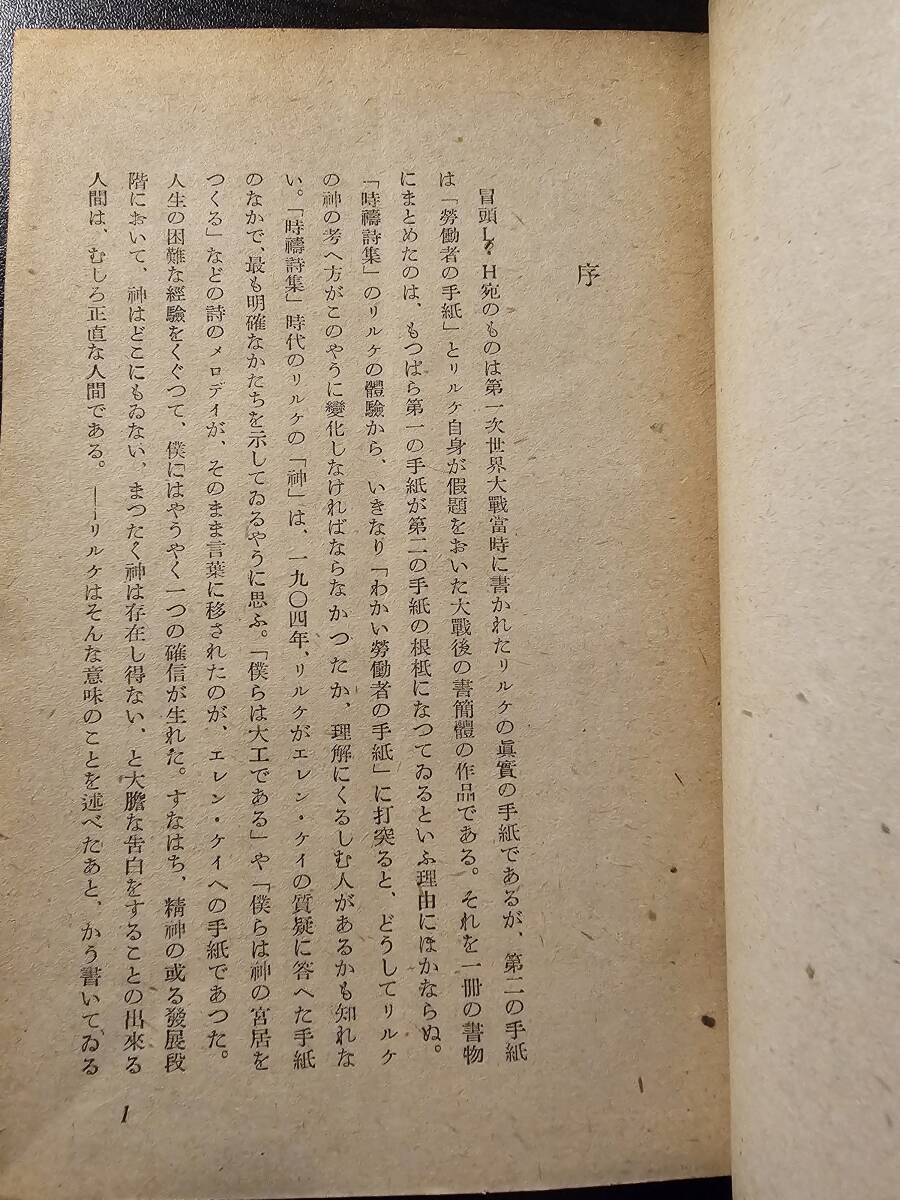 序
冒頭L・H宛のものは第一次世界大戰當時に書かれたリルケの眞實の手紙であるが、第二の手紙
は「勞働者の手紙」とリルケ自身が假題をおいた大戰後の書簡體の作品である。それを一冊の書物
にまとめたのは、もつぱら第一の手紙が第二の手紙の根柢になつてゐるといふ理由にほかならぬ。
「時禱詩集」のリルケの體驗から、いきなり「わかい勞働者の手紙」に打突ると、どうしてリルケ
の神の考へ方がこのやうに變化しなければならなかつたか、理解にくるしむ人があるかも知れな
い。「時禱詩集」時代のリルケの「神」は、一九〇四年、リルケがエレン・ケイの質疑に答へた手紙
のなかで、最も明確なかたちを示してゐるやうに思ふ。「僕らは大工である」や「僕らは神の宮居を
つくる」などの詩のメロデイが、そのまま言葉に移されたのが、エレン・ケイへの手紙であつた。
人生の困難な經驗をくぐつて、僕にはやうやく一つの確信が生れた。すなはち、精神の或る發展段
階において、神はどこにもゐない、まつたく神は存在し得ない、と大膽な告白をすることの出來る
人間は、むしろ正直な人間である。――リルケはそんな意味のことを述べたあと、かう書いてゐる
1